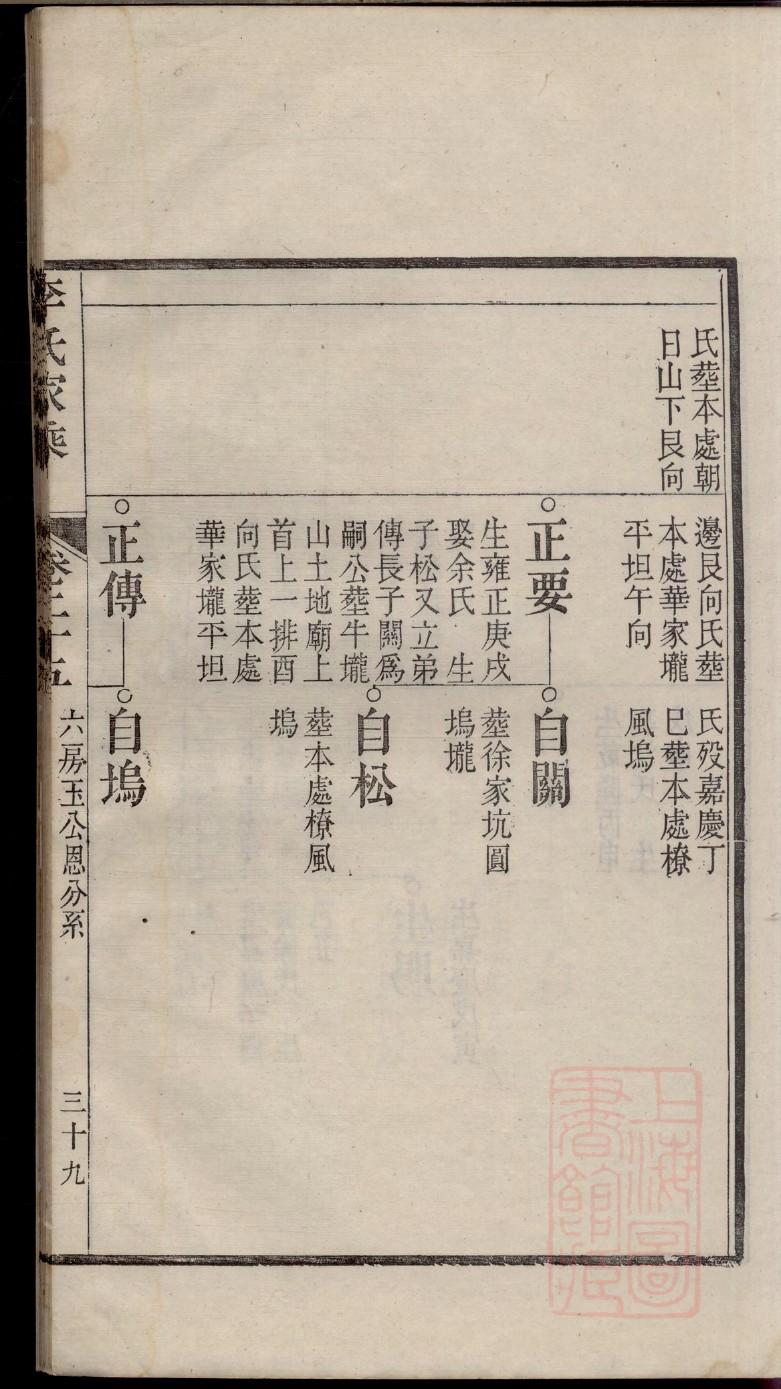 氏塟本處朝
日山下艮向
邊艮向氏塟
本處華家壠
平坦午向
氏歿嘉慶丁
巳塟本處橑
風塢
正要
生雍正庚戌
娶余氏　生
子松又立弟
傳長子關爲
嗣公塟牛壠
山土地廟上
首上一排酉
向氏塟本處
華家壠平坦
自關
塟徐家坑圓
塢壠
自松
塟本處橑風
塢
正傳
自塢
李氏家乘
卷二十五
六房玉公恩分系
三十九
上海圖
書館藏